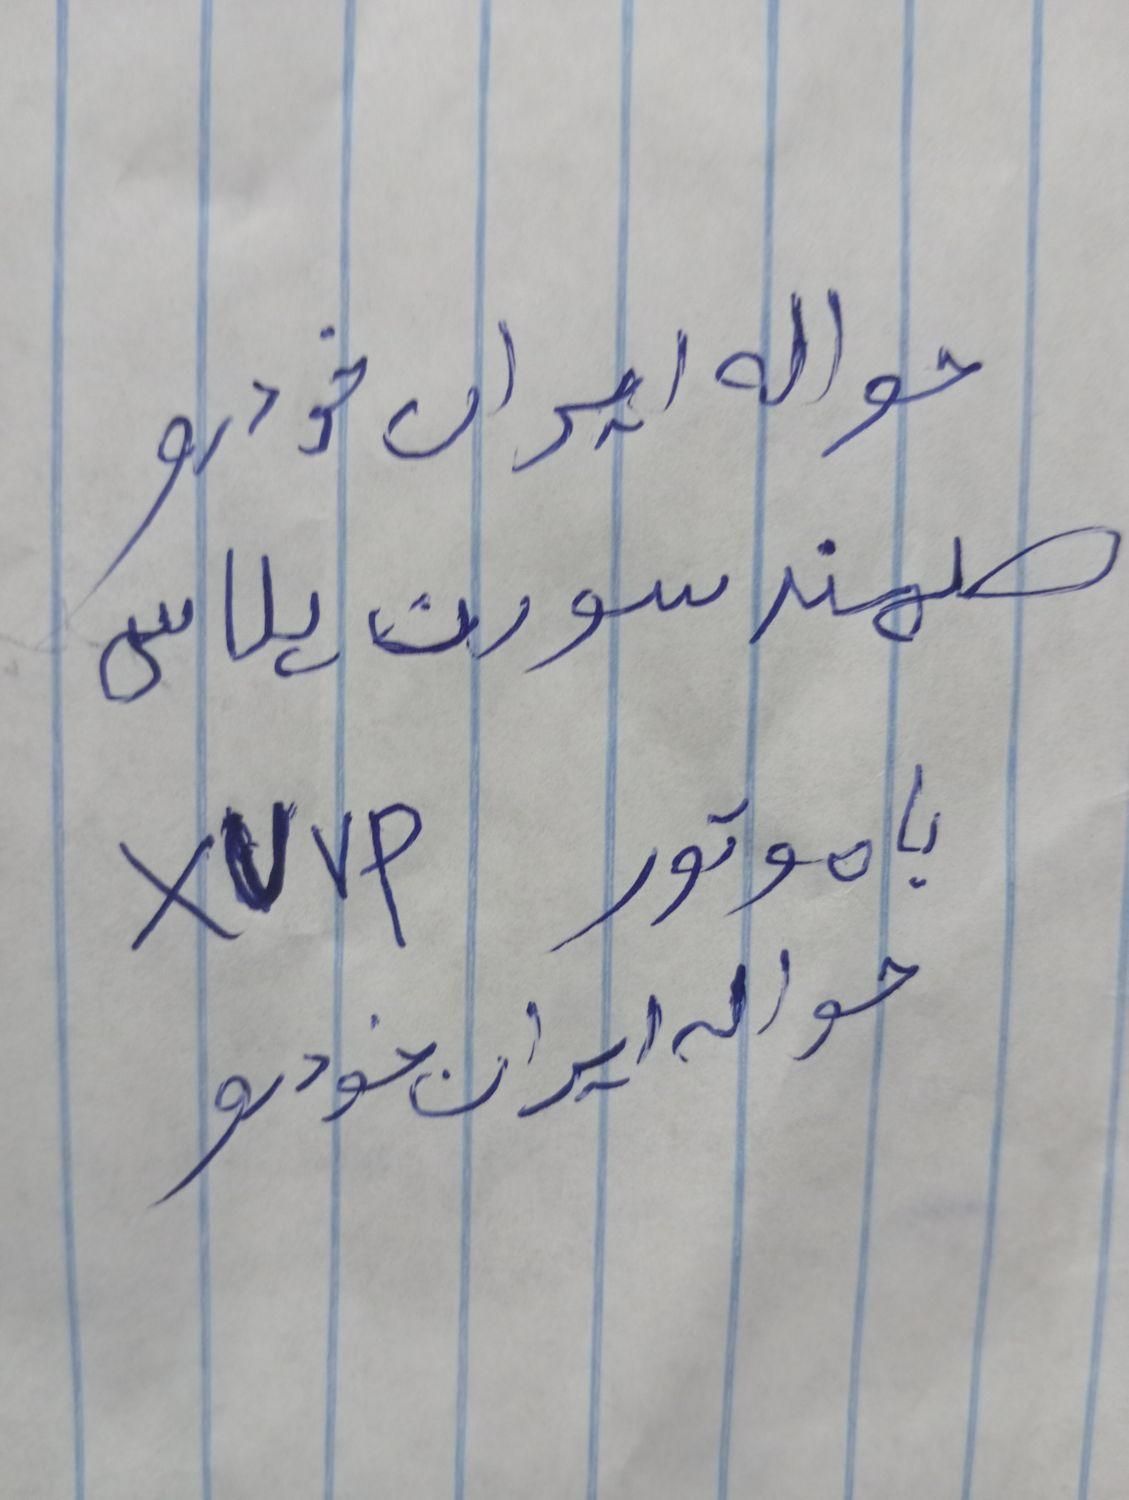 حواله ایران خودرو
صهند سورن پلاس
با موتور XU7P
حواله ایران خودرو